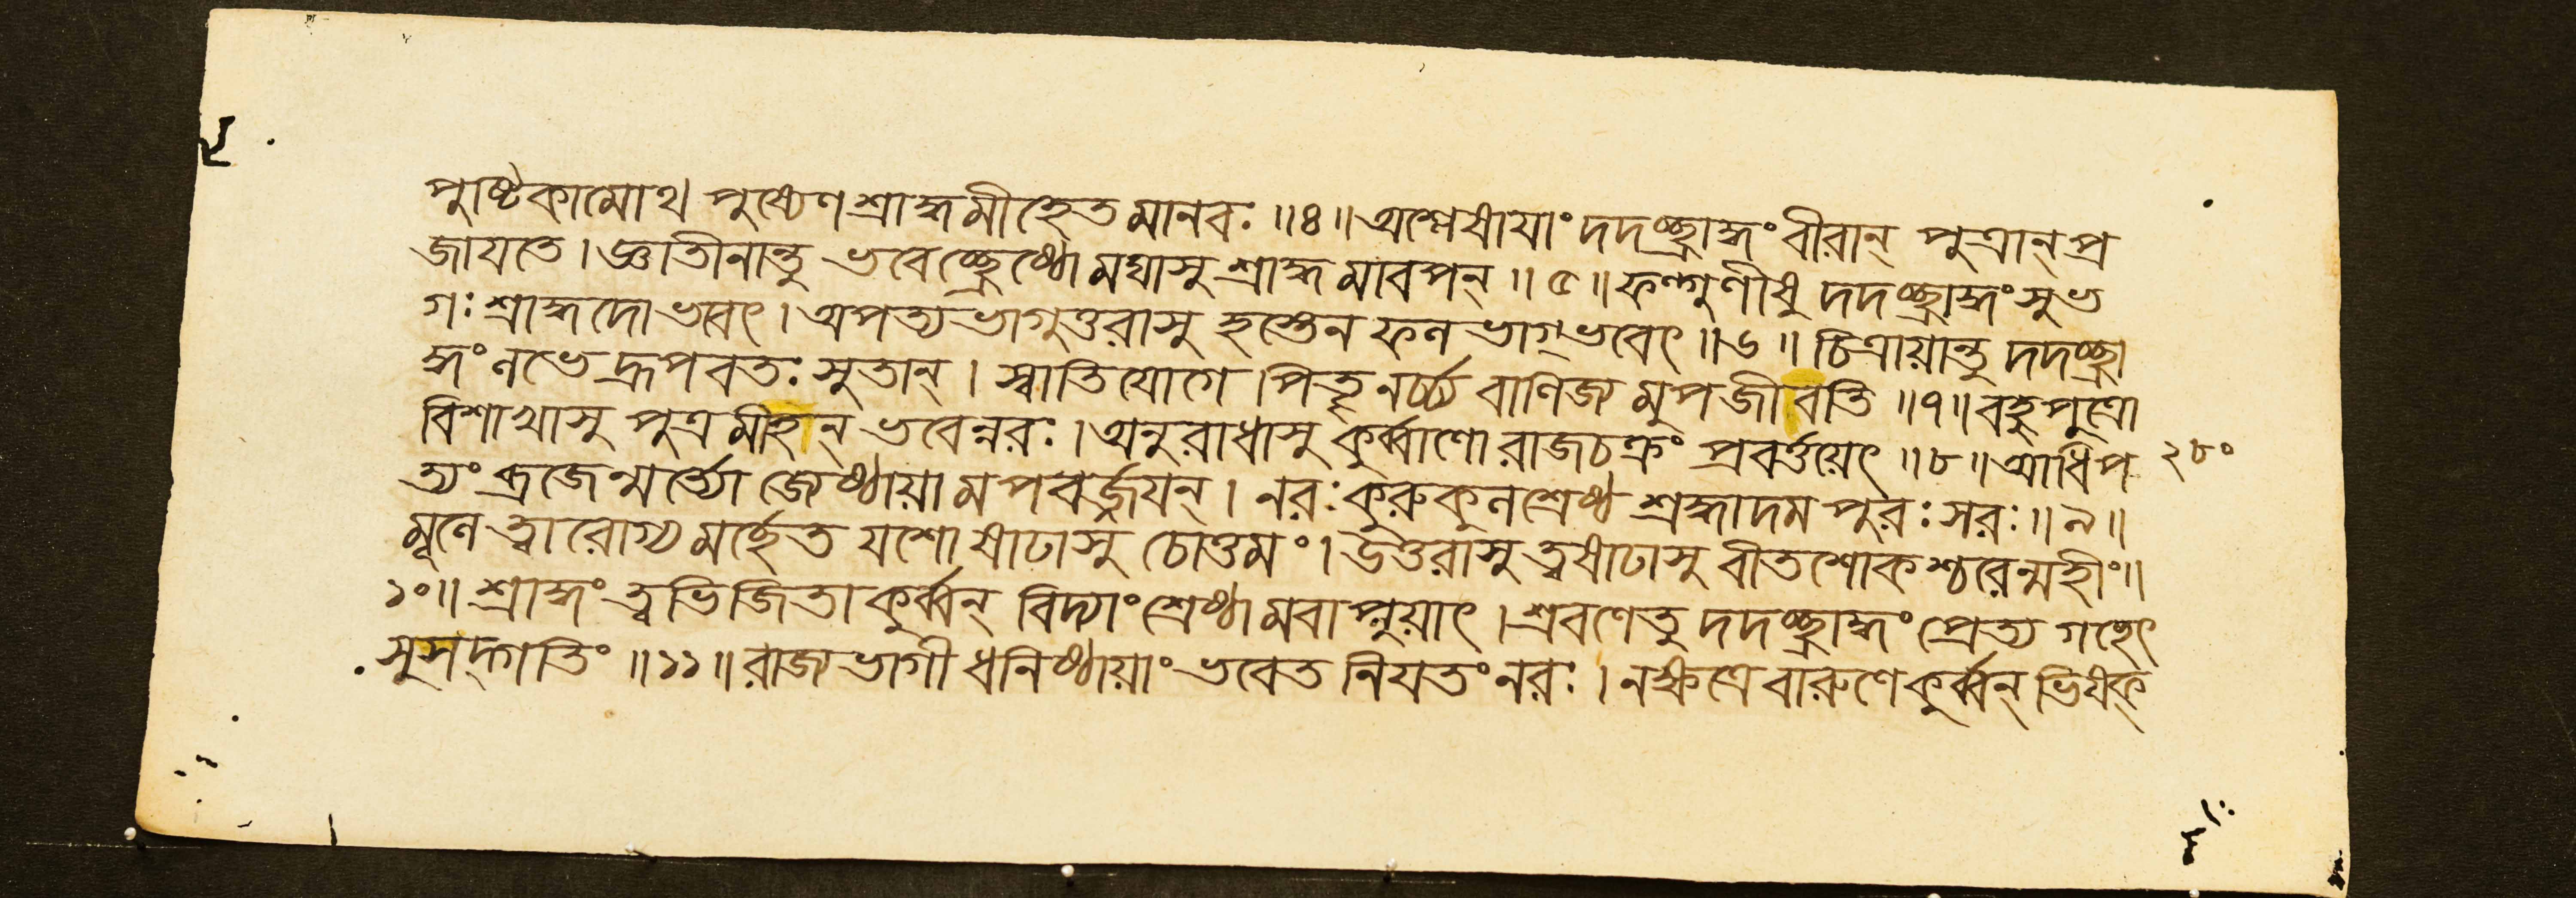 পুষ্টিকামোথ পুষ্যেণ শ্রাদ্ধমীহেত মানবঃ ॥৪॥ অশ্লেষায়াং দদচ্ছ্রাদ্ধং বীরান্ পুত্রান্ প্র
জায়তে । জ্ঞাতীনান্তু ভবেচ্ছ্রেষ্ঠো মঘাসু শ্রাদ্ধমাবপন্ ॥৫॥ ফল্গুণীষু দদচ্ছ্রাদ্ধং সুভ
গঃ শ্রাদ্ধদো ভবেৎ । অপত্যভাগুত্তরাসু হস্তেন ফলভাগ্ভবেৎ ॥৬॥ চিত্রায়ান্তু দদচ্ছ্রা
দ্ধং লভেদ্রূপবতঃ সুতান্ । স্বাতিযোগে পিতৄনর্চ্চ্য বাণিজ্যমুপজীবতি ॥৭॥ বহুপুত্রো
বিশাখাসু পুত্রমীহন্ ভবেন্নরঃ । অনুরাধাসু কুর্ব্বাণো রাজচক্রং প্রবর্ত্তয়েৎ ॥৮॥ আধিপ
ত্যং ব্রজেন্মর্ত্ত্যো জ্যেষ্ঠায়ামপবর্জ্জয়ন্ । নরঃ কুরুকুলশ্রেষ্ঠ শ্রদ্ধাদমপুরঃসরঃ ॥৯॥
মূলে ত্বারোগ্যমর্চ্ছেত যশোষাঢাসু চোত্তমং । উত্তরাসু ত্বষাঢাসু বীতশোকশ্চরেন্মহীং ॥
১০॥ শ্রাদ্ধং ত্বভিজিতা কুর্ব্বন্ বিদ্যাং শ্রেষ্ঠামবাপ্নুয়াৎ । শ্রবণে তু দদচ্ছ্রাদ্ধং প্রেত্য গচ্ছেৎ
সুসদ্গতিং ॥১১॥ রাজ্যভাগী ধনিষ্ঠায়াং ভবেত নিয়তং নরঃ । নক্ষত্রে বারুণে কুর্ব্বন্ ভিষক্
২৮০